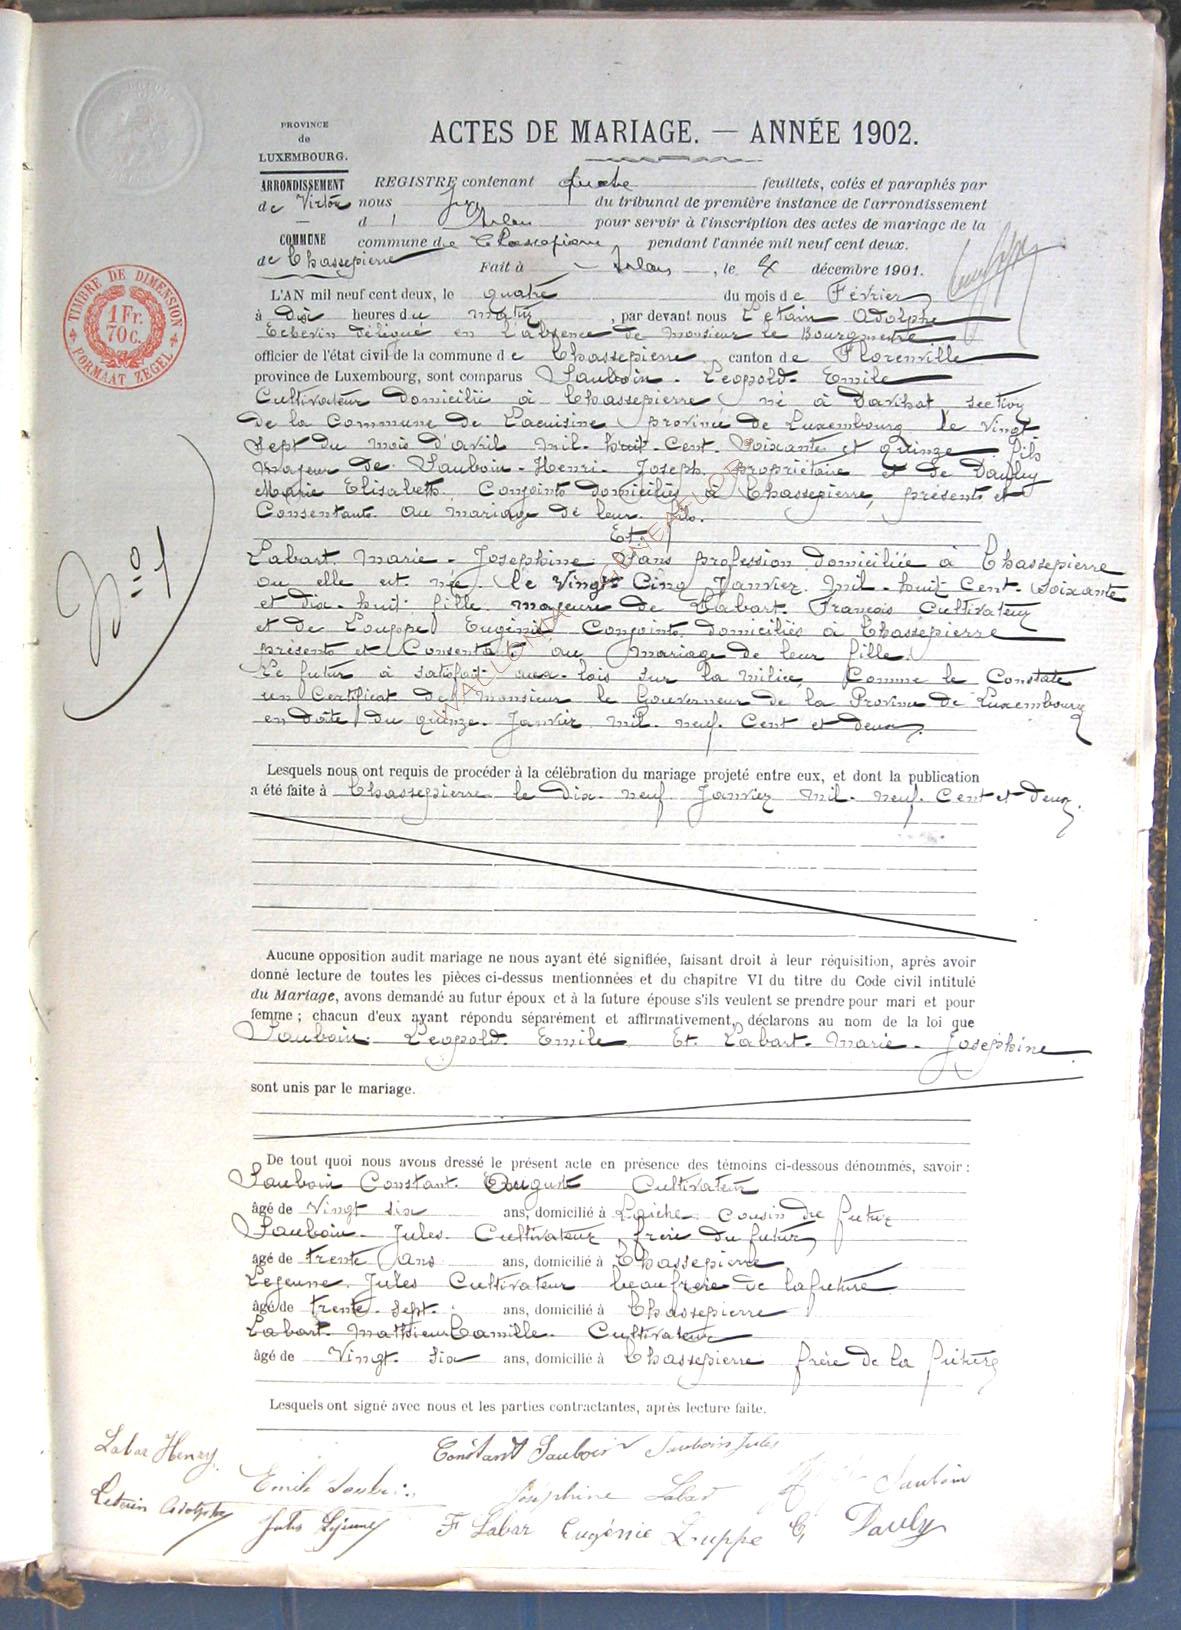 PROVINCE
de
LUXEMBOURG.
ARRONDISSEMENT
de Virton
COMMUNE
de Chassepierre
TIMBRE DE DIMENSION
1 Fr.
70 c.
FORMAAT ZEGEL
ACTES DE MARIAGE. — ANNÉE 1902.
REGISTRE contenant quatre feuillets, cotés et paraphés par
nous Juge du tribunal de première instance de l'arrondissement
d'Arlon pour servir à l'inscription des actes de mariage de la
commune de Chassepierre pendant l'année mil neuf cent deux.
Fait à Arlon, le décembre 1901.
L'AN mil neuf cent deux, le quatre du mois de Février
à dix heures du matin, par devant nous Letain Adolphe
Echevin délégué en l'absence de Monsieur le Bourgmestre
officier de l'état civil de la commune de Chassepierre, canton de Florenville
province de Luxembourg, sont comparus Sauboin. Leopold. Emile
Cultivateur domicilié à Chassepierre né à section
de la Commune de Lacuisine province de Luxembourg le vingt
sept du mois d'avril mil. huit. Cent. soixante et quinze. fils
majeur de Sauboin. Henri. Joseph, propriétaire et de
Marie Elisabeth, Conjoints domiciliés à Chassepierre, présents et
Consentants au mariage de leur fils.
Et
Labart Marie. Josephine sans profession domiciliée à Chassepierre
ou elle est née le vingt Cinq Janvier Mil. huit Cent. soixante
et dix. huit. fille majeure de Labart. François Cultivateur
et de Louppe Eugénie Conjoints domiciliés à Chassepierre
présents et Consentant au mariage de leur fille.
Le futur à satisfait aux lois sur la milice, Comme le Constate
un Certificat de Monsieur le Gouverneur de la Province de Luxembourg
en date du quinze. Janvier mil. neuf. Cent et deux.
Lesquels nous ont requis de procéder à la célébration du mariage projeté entre eux, et dont la publication
a été faite à Chassepierre le dix. neuf Janvier mil. neuf. Cent et deux.
Aucune opposition audit mariage ne nous ayant été signifiée, faisant droit à leur réquisition, après avoir
donné lecture de toutes les pièces ci-dessus mentionnées et du chapitre VI du titre du Code civil intitulé
du Mariage, avons demandé au futur époux et à la future épouse s'ils veulent se prendre pour mari et pour
femme ; chacun d'eux ayant répondu séparément et affirmativement, déclarons au nom de la loi que
Sauboin. Leopold. Emile. Et. Labart. Marie. Josephine
sont unis par le mariage.
De tout quoi nous avons dressé le présent acte en présence des témoins ci-dessous dénommés, savoir :
Sauboin Constant August Cultivateur
âgé de Vingt six ans, domicilié à Laiche Cousin du futur
Sauboin. Jules. Cultivateur, frère du futur
âgé de trente ans ans, domicilié à Chassepierre
Lejeune. Jules Cultivateur beaufrère de la future
âgé de trente. sept. ans, domicilié à Chassepierre
Labart. Mathieu Camille. Cultivateur
âgé de Vingt. six ans, domicilié à Chassepierre frère de la future
Lesquels ont signé avec nous et les parties contractantes, après lecture faite.
N° 1
Labar Henry
Constant Sauboin Sauboin Jules
Emile Sauboin Joséphine Labart Sauboin
Adolphe Jules Lejeune F Labar Eugénie Luppe Dauly
WALLONIA